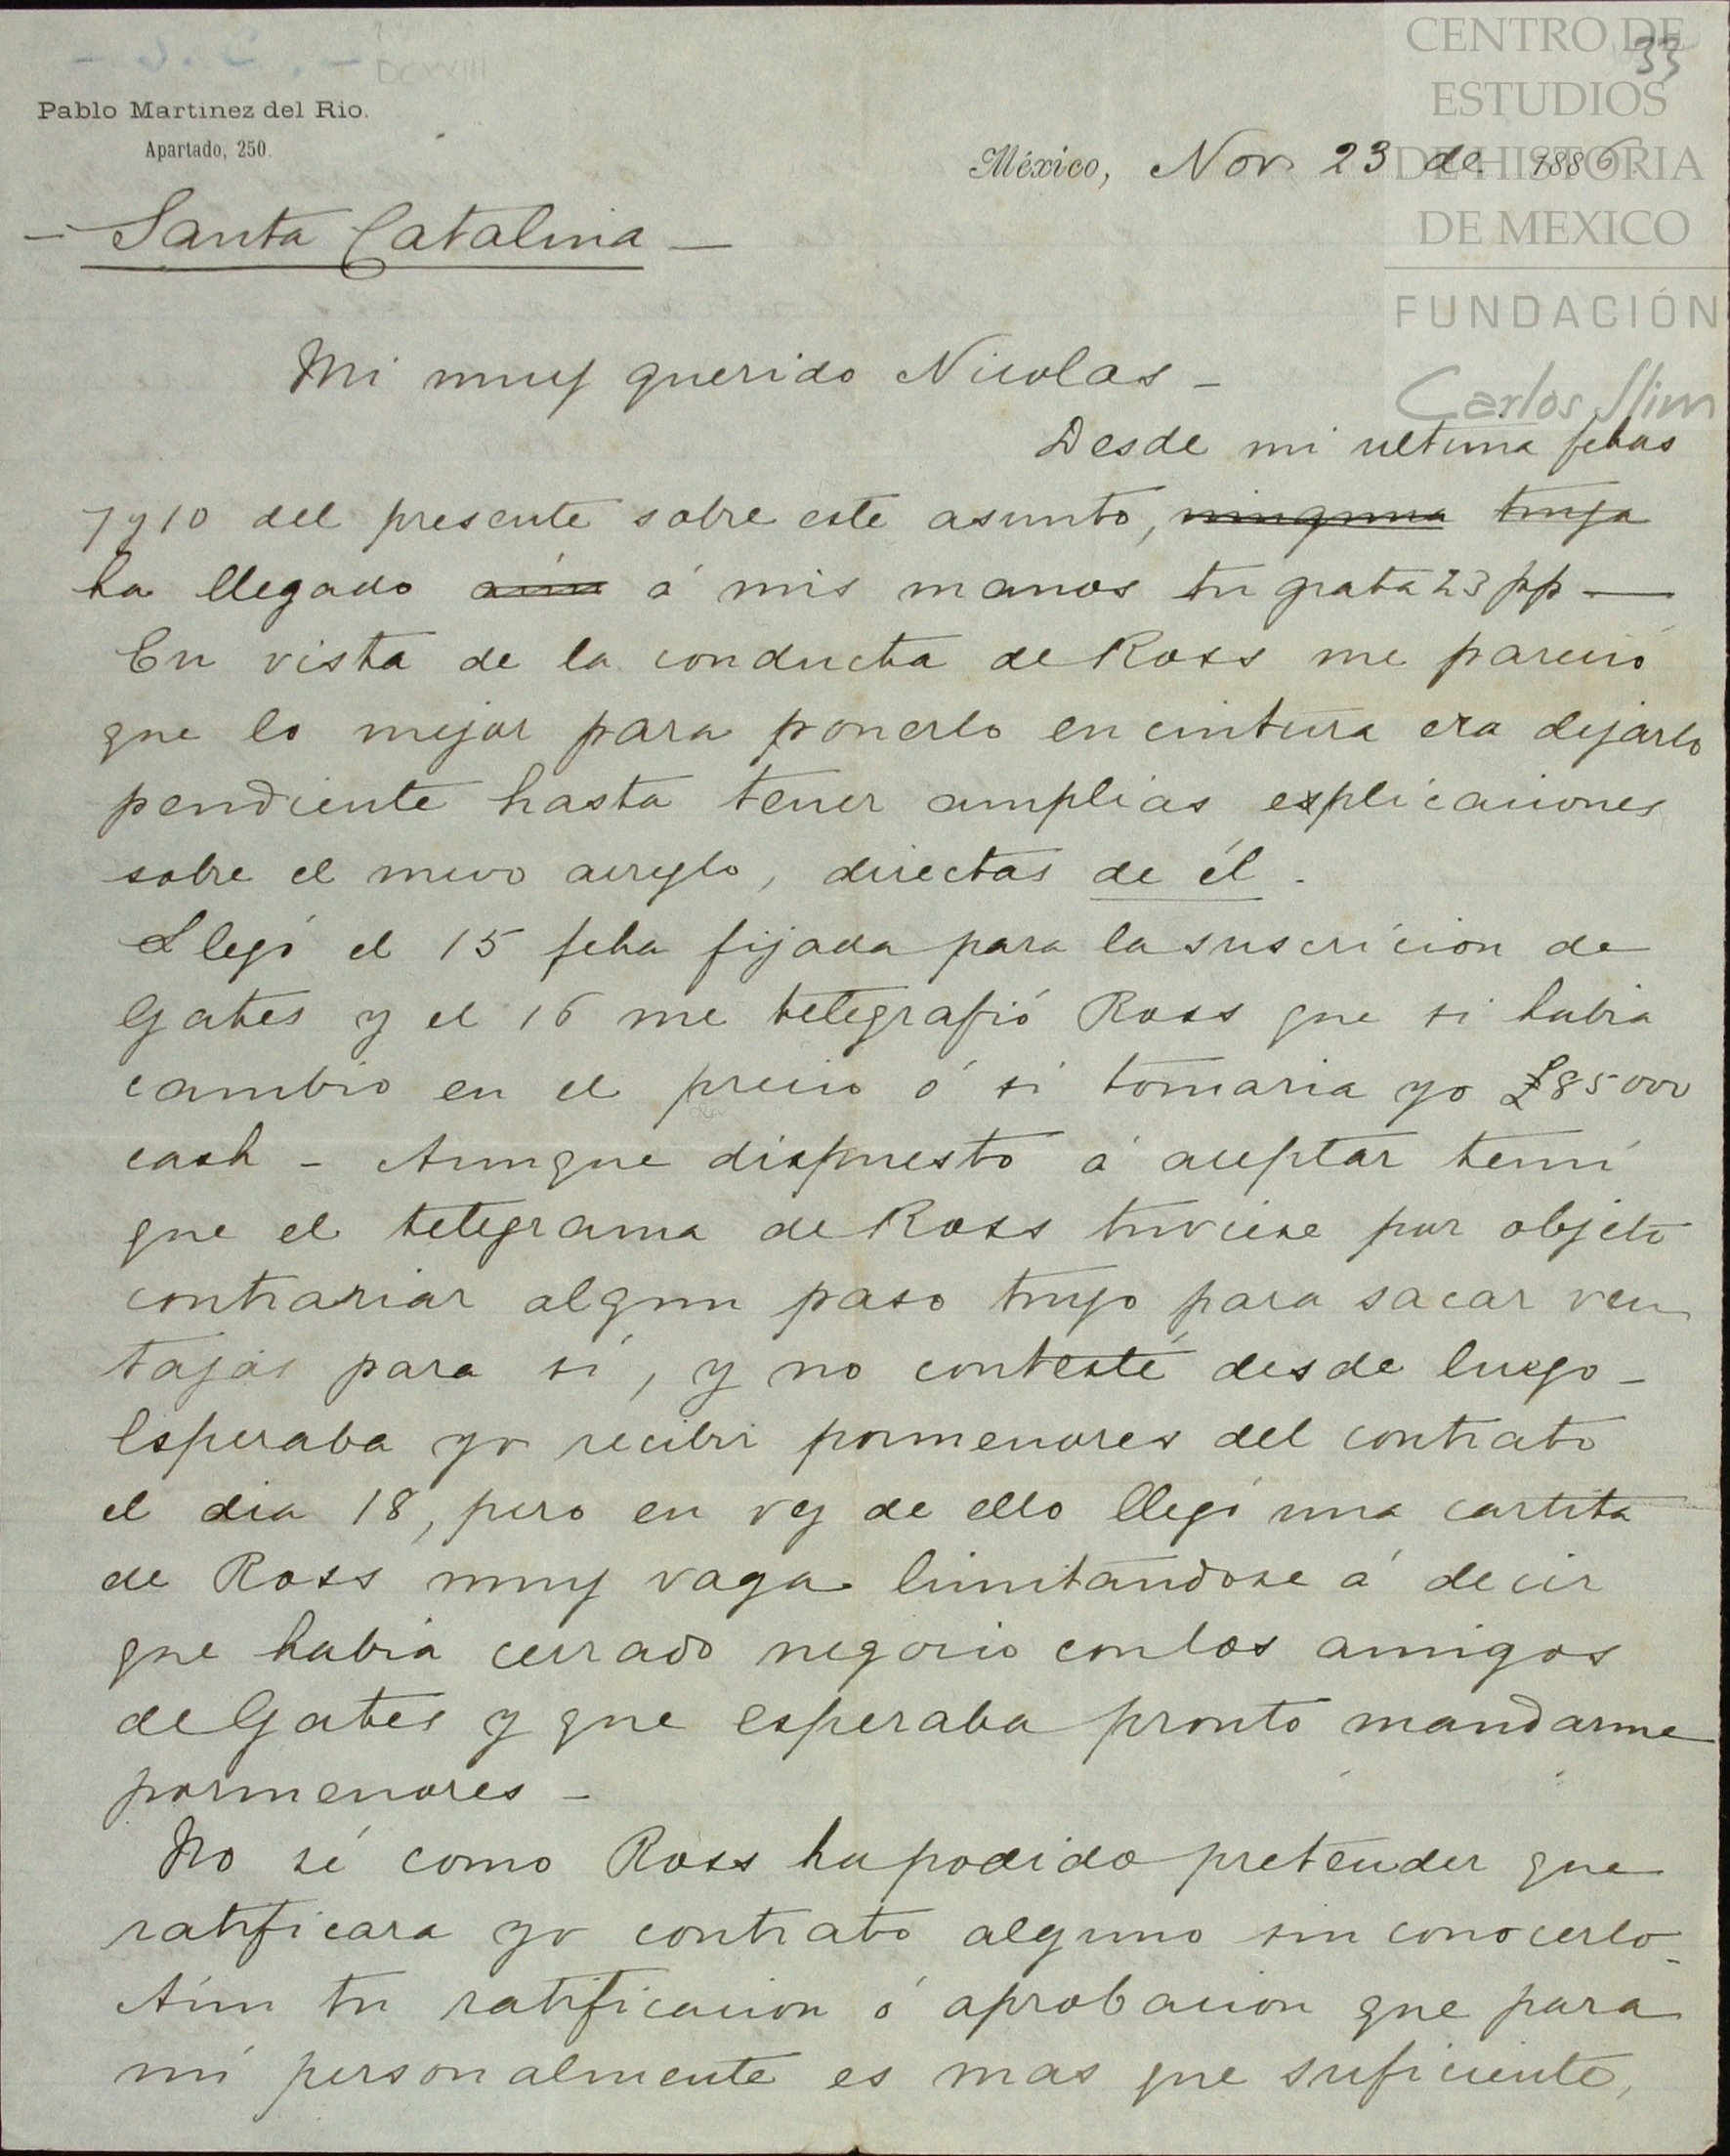 33
Pablo Martinez del Rio.
Apartado, 250.
México, Nov 23 de 1886.
- Santa Catalina -
Mi muy querido Nicolas -
Desde mi ultima fehas
7 y 10 del presente sobre este asunto, ninguna tuya
ha llegado aún á mis manos tu grata 23 pp —
En vista de la conducta de Ross me pareció
que lo mejor para ponerlo en cintura era dejarlo
pendiente hasta tener amplias explicaciones
sobre el nuevo arreglo, directas de él.
Llegó el 15 feha fijada para la suscricion de
Gates y el 16 me telegrafió Ross que si habia
cambio en el precio ó si tomaria yo £85000
cash - Aunque dispuesto á aceptar temí
que el telegrama de Ross tuviese por objeto
contrariar algun paso tuyo para sacar ven
tajas para sí, y no contesté desde luego -
Esperaba yo recibir pormenores del contrato
el dia 18, pero en vez de ello llegó una cartita
de Ross muy vaga limitandose á decir
que habia cerrado negocio con los amigos
de Gates y que esperaba pronto mandarme
pormenores -
No sé como Ross ha podido pretender que
ratificara yo contrato alguno sin conocerlo -
Aún tu ratificacion ó aprobacion que para
mí personalmente es mas que suficiente,
CENTRO DE
ESTUDIOS
DE HISTORIA
DE MEXICO
FUNDACIÓN
Carlos Slim